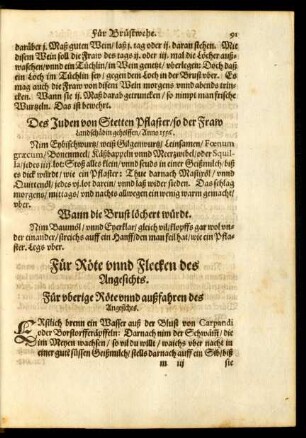 Für Brüstwehe. 91
darüber j. Maß guten Wein/ laß j. tag oder ij. daran stehen. Mit
disem Wein soll die Fraw des tags ij. oder iij. mal die Löcher auß-
waschen/ vnnd ein Tüchlin/ im Wein genetzt/ vberlegen: Doch daß
ein Loch im Tüchlin sey/ gegen dem Loch in der Brust vber. Es
mag auch die Fraw von disem Wein morgens vnnd abends trin-
cken. Wann sie ij. Maß darab getruncken/ so nimpt man frische
Wurtzeln. Das ist bewehrt.
Des Juden von Stetten Pflaster/ so der Fraw
Landschädin geholffen/ Anno 1556.
Nim Eybischwurtz/ weiß Gilgenwurtz/ Leinsamen/ Fœnum
græcum/ Bonenmeel/ Käßpappeln vnnd Meerzwibel/ oder Squil-
la/ jedes iiij. lot: Stoß alles klein/ vnnd seuds in einer Geißmilch/ biß
es dick würdt/ wie ein Pflaster: Thue darnach Mastixöl/ vnnd
Quittenöl/ jedes vj. lot darein/ vnnd laß wider sieden. Das schlag
morgens/ mittags/ vnd nachts allweg auff ein wenig warm vber.
Wann die Brust löchert würdt.
Nim Baumöl/ vnnd Eyerklar/ gleich vil/ klopffs gar wol vn-
der einander/ streichs auff ein Hanff/ den man feil hat/ wie ein Pfla-
ster. Legs vber.
Für Röte vnnd Flecken des
Angesichts.
Für vberige Röte vnnd außfahren des
Angesichts.
ERstlich brenn ein Wasser auß der Blust von Carpendi
oder Borstorfferäpffeln: Darnach nim der Schwäm/ die
im Meyen wachsen/ so vil du willt/ waichs vber nacht in
einer guten süssen Geißmilch/ stells darnach auff ein Sib/ biß
m iij sie